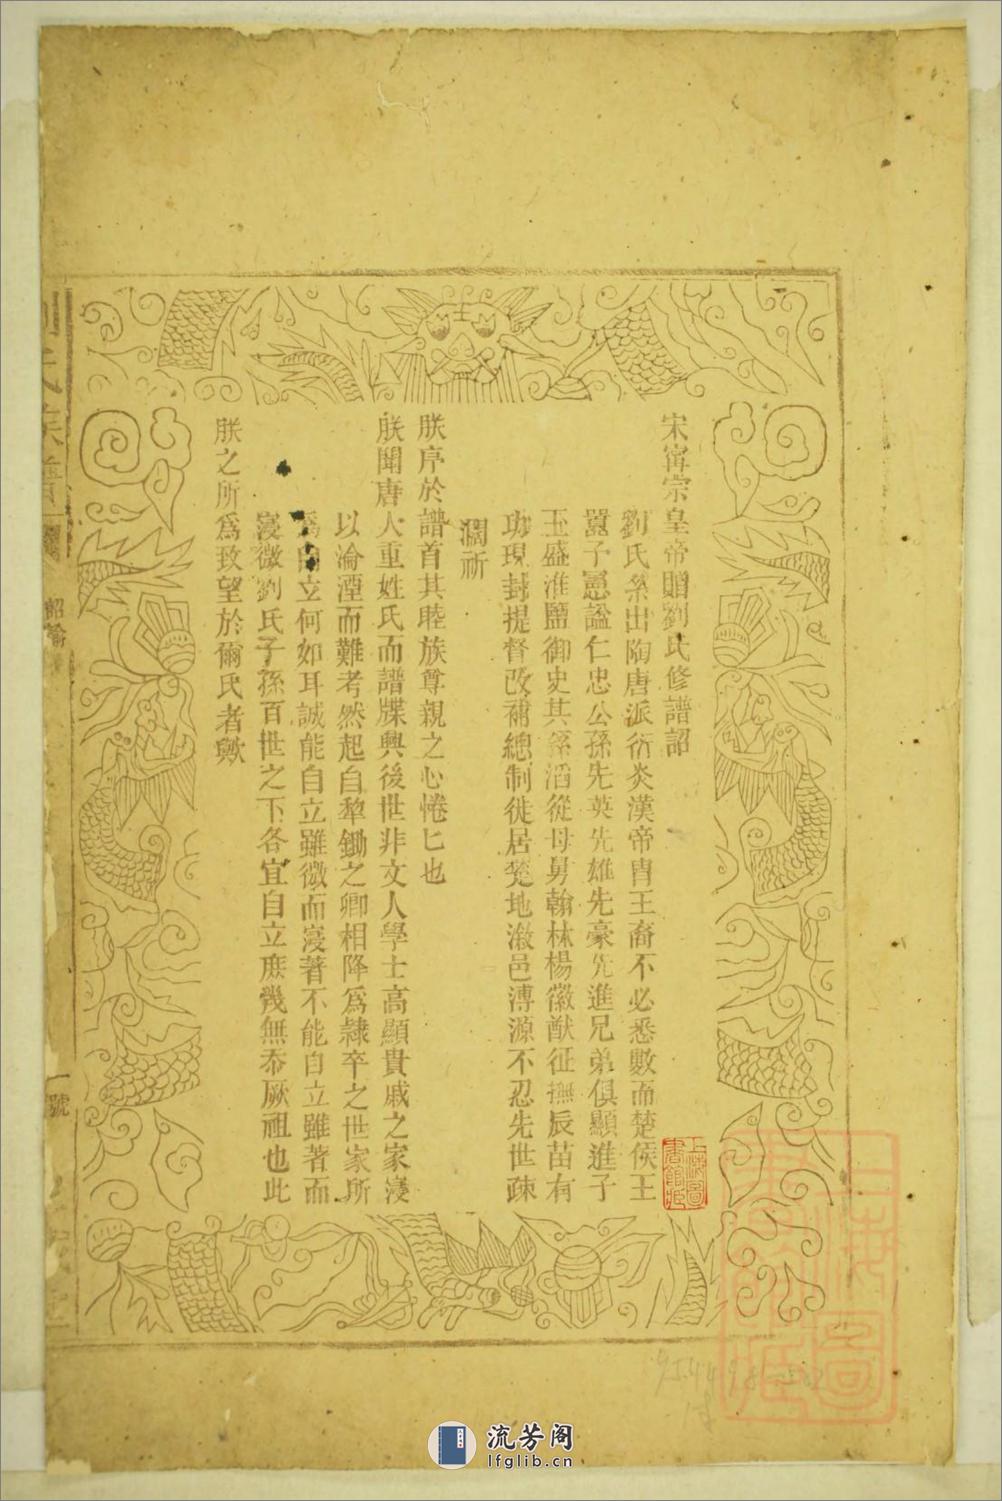 宋甯宗皇帝贈劉氏修譜詔
劉氏系出陶唐派衍炎漢帝胄王裔不必悉數而楚侯王
囂子憲謚仁忠公孫先英先雄先豪先進兄弟俱顯進子
玉盛淮鹽御史其孫滔從母舅翰林楊徽猷征撫辰苗有
功現封提督改補總制徙居楚地溆邑溥源不忍先世疎
濶祈
朕序於譜首其睦族尊親之心惓匕也
朕聞唐人重姓氏而譜牒興後世非文人學士高顯貴戚之家寖
以淪湮而難考然起自犁鋤之卿相降爲隸卒之世家所
爲自立何如耳誠能自立雖微而寖著不能自立雖著而
寖微劉氏子孫百世之下各宜自立庶幾無忝厥祖也此
朕之所爲致望於爾氏者歟
劉氏族譜
詔諭
一號
上海圖書館藏
上海圖書館藏
流芳阁
lfglib.cn